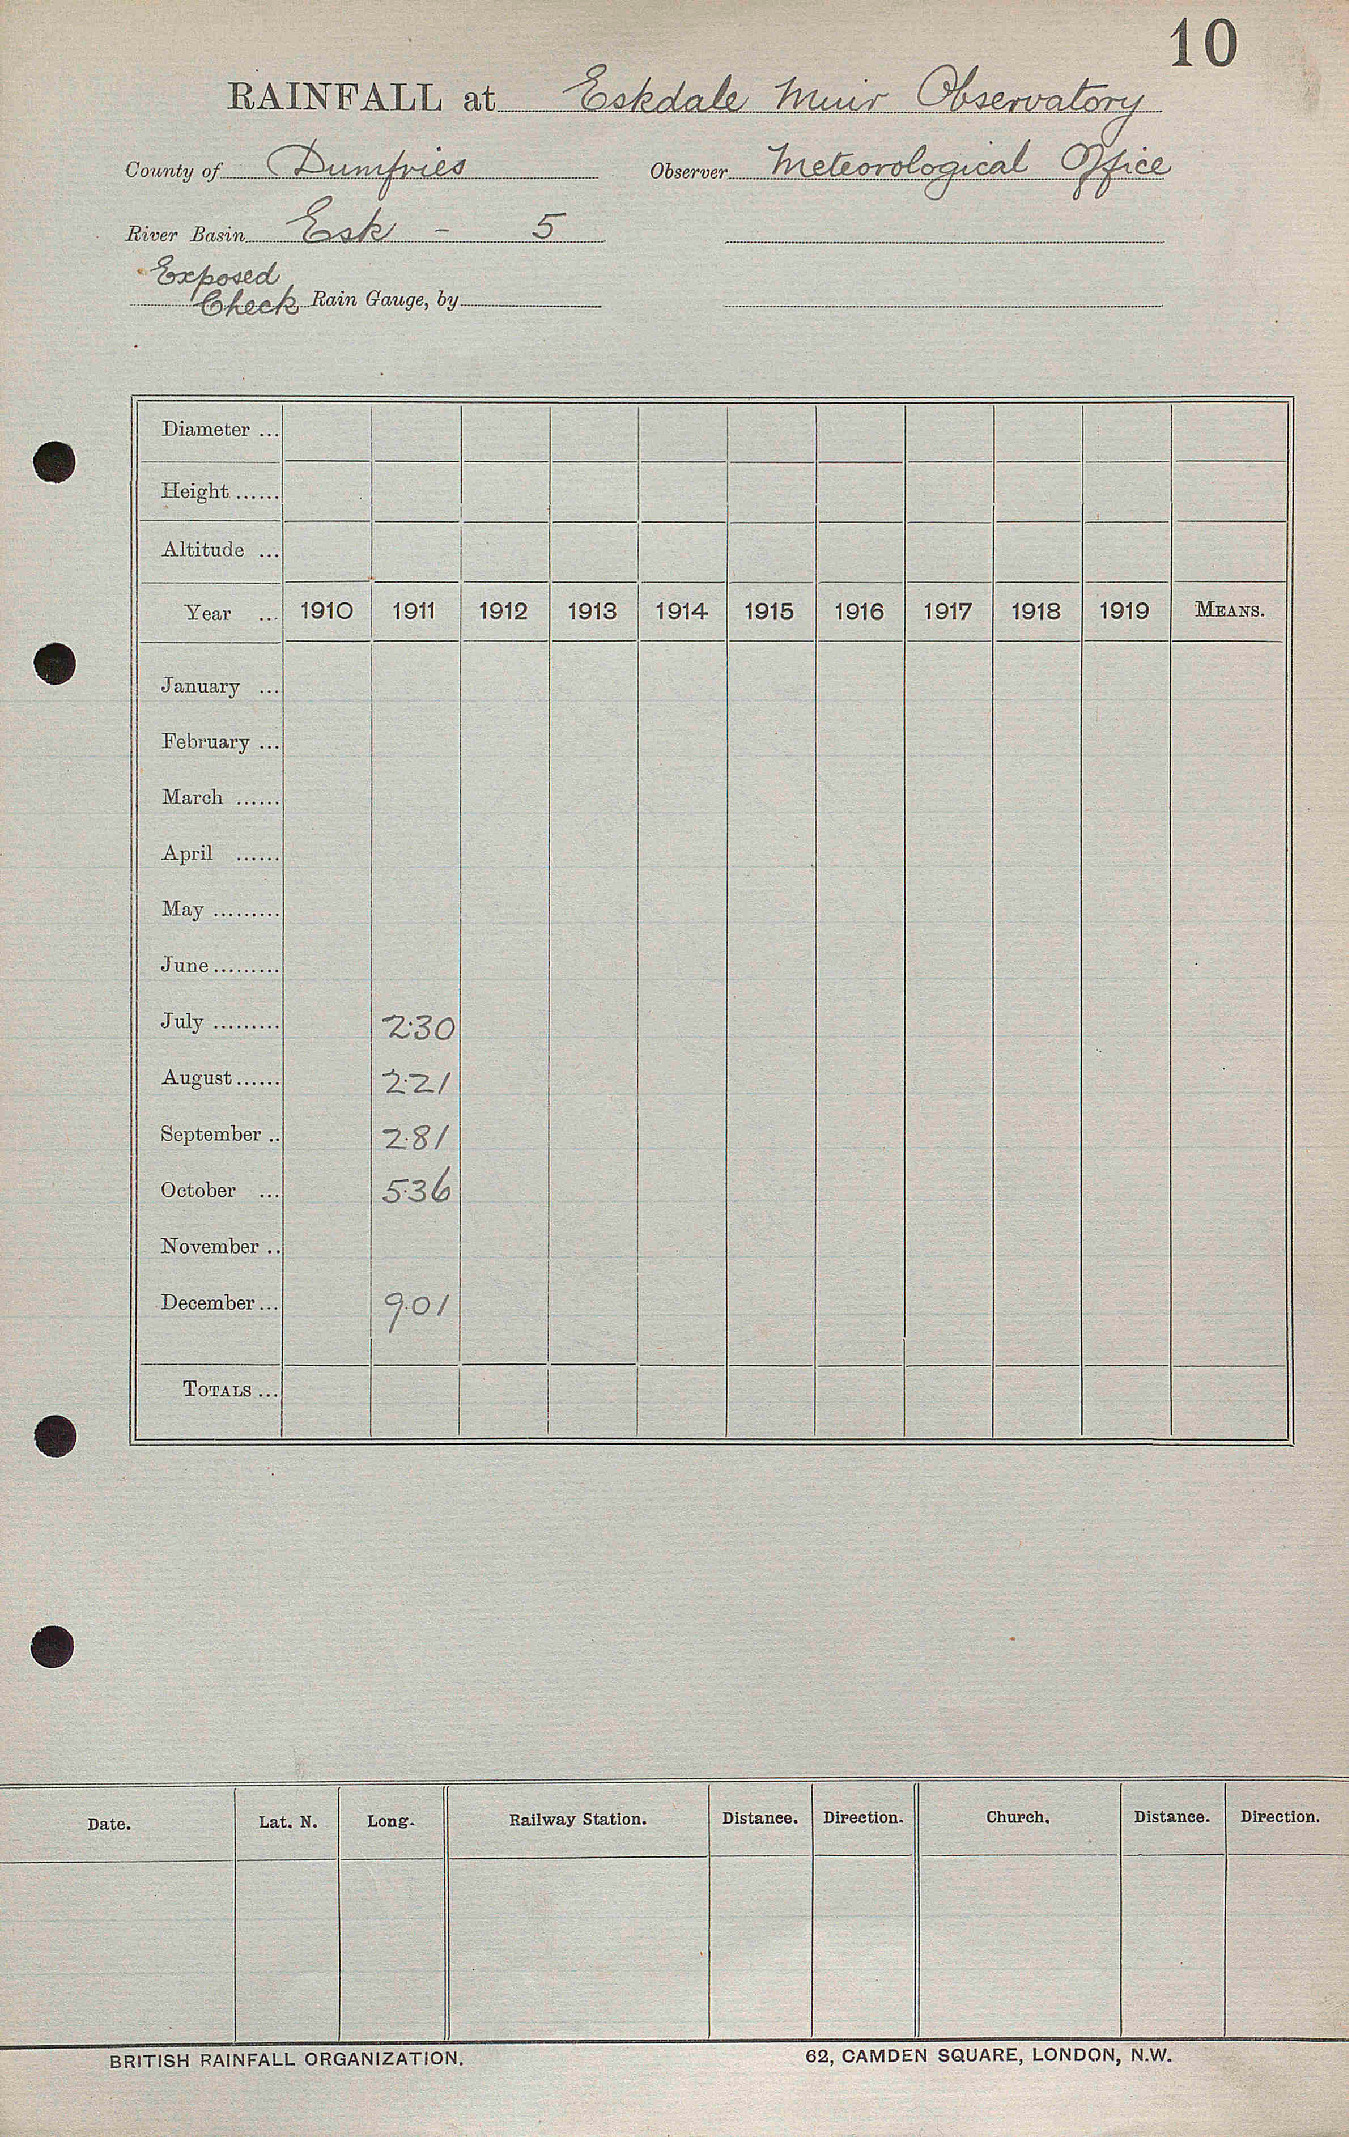 10
RAINFALL at Eskdale Muir Observatory
County of Dumfries Observer Meteorological Office
River Basin Esk - 5
Exposed
Check Rain Gauge, by
Diameter ...
Height ......
Altitude ...
Year ... 1910 1911 1912 1913 1914 1915 1916 1917 1918 1919 MEANS.
January ...
February ...
March ......
April ......
May .........
June .........
July ......... 2.30
August ...... 2.21
September .. 2.81
October ... 5.36
November ..
December ... 9.01
TOTALS ...
Date. Lat. N. Long. Railway Station. Distance. Direction. Church. Distance. Direction.
BRITISH RAINFALL ORGANIZATION. 62, CAMDEN SQUARE, LONDON, N.W.